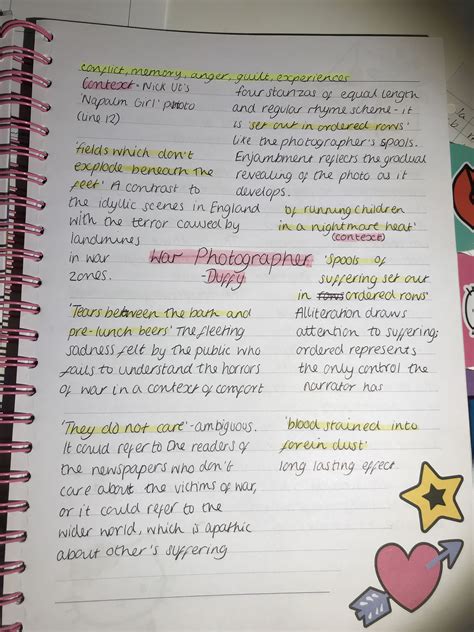 conflict, memory, anger, guilt, experiences
Context - Nick Ut's
Napalm Girl' photo
(line 12)
four stanzas of equal length
and regular rhyme scheme - it
is 'set out in ordered rows'
like the photographer's spools.
Enjambment reflects the gradual
revealing of the photo as it
develops.
'fields which don't
explode beneath the
feet' A contrast to
the idyllic scenes in England
with the terror caused by
landmines
in war
zones.
of running children
in a nightmare heat'
(context)
War Photographer
-Duffy
'Spools of
suffering set out
in rows ordered rows'
Alliteration draws
attention to suffering;
ordered represents
the only control the
narrator has
'Tears between the bath and
pre-lunch beers' The fleeting
sadness felt by the public who
fails to understand the horrors
of war in a context of comfort
'They do not care' - ambiguous.
It could refer to the readers of
the newspapers who don't
care about the victims of war,
or it could refer to the
wider world, which is apathic
about other's suffering
'blood stained into
forein dust'
long lasting effect